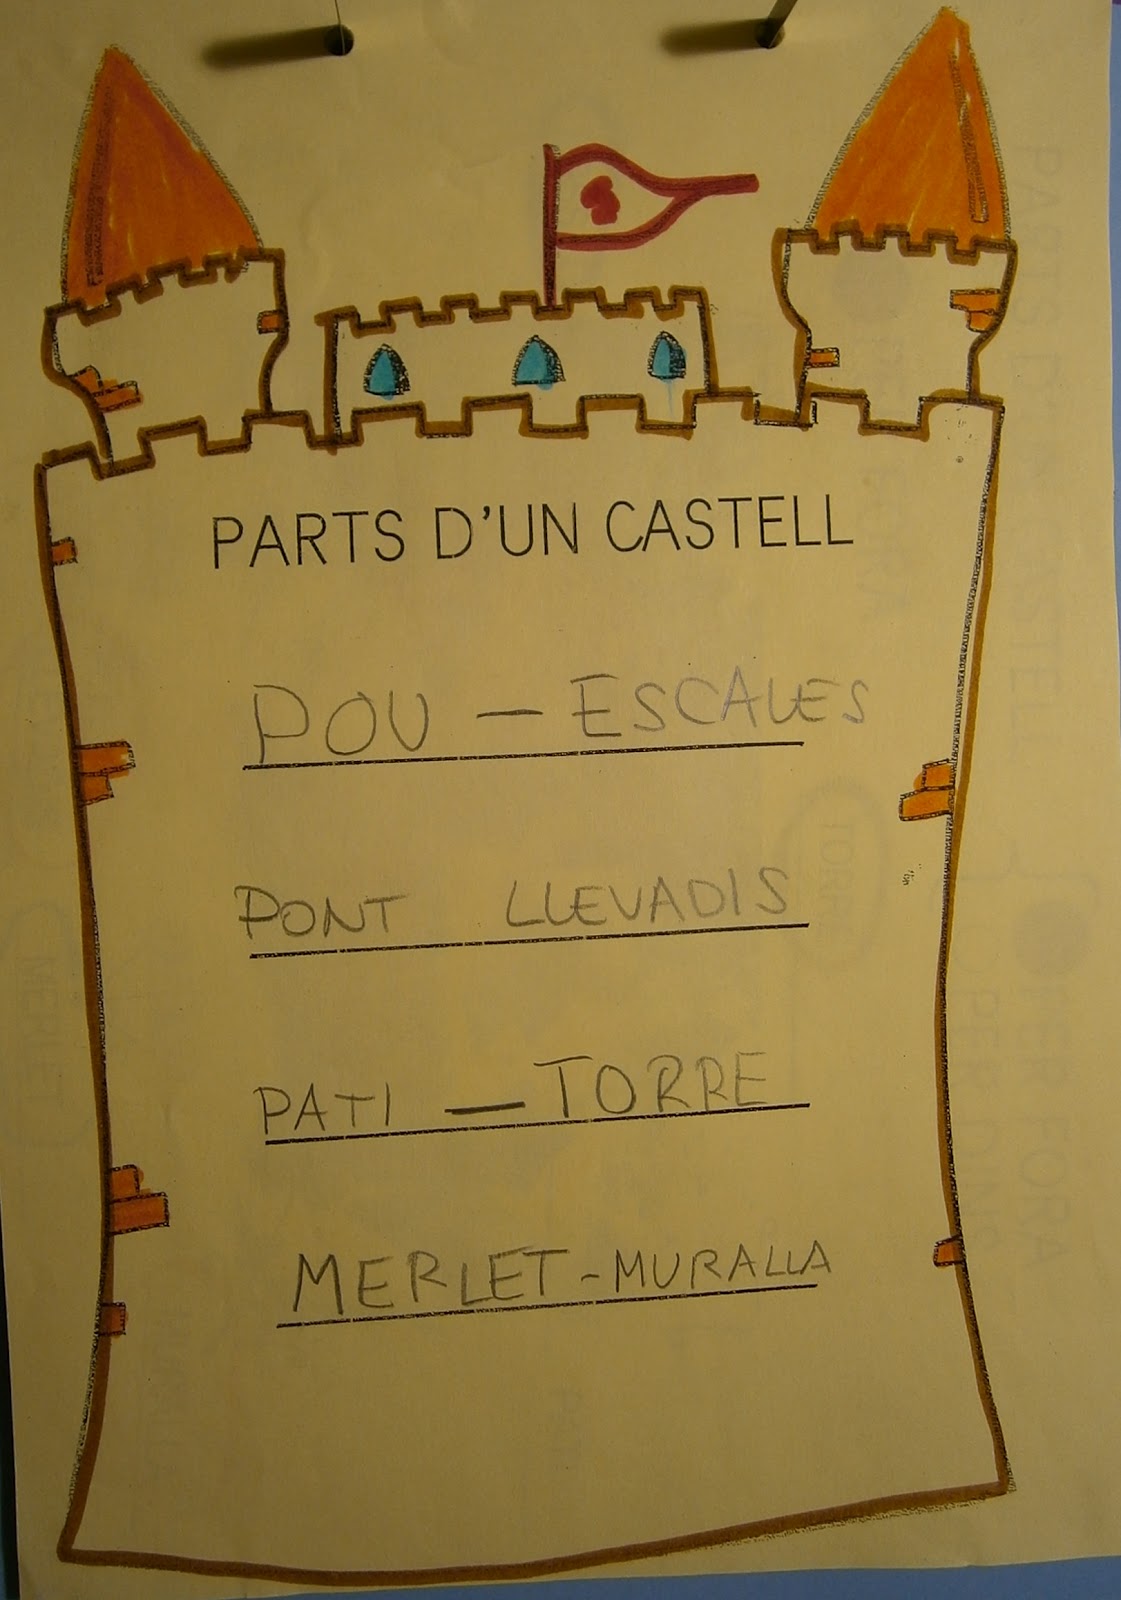 PARTS D'UN CASTELL
POU — ESCALES
PONT LLEVADIS
PATI — TORRE
MERLET - MURALLA